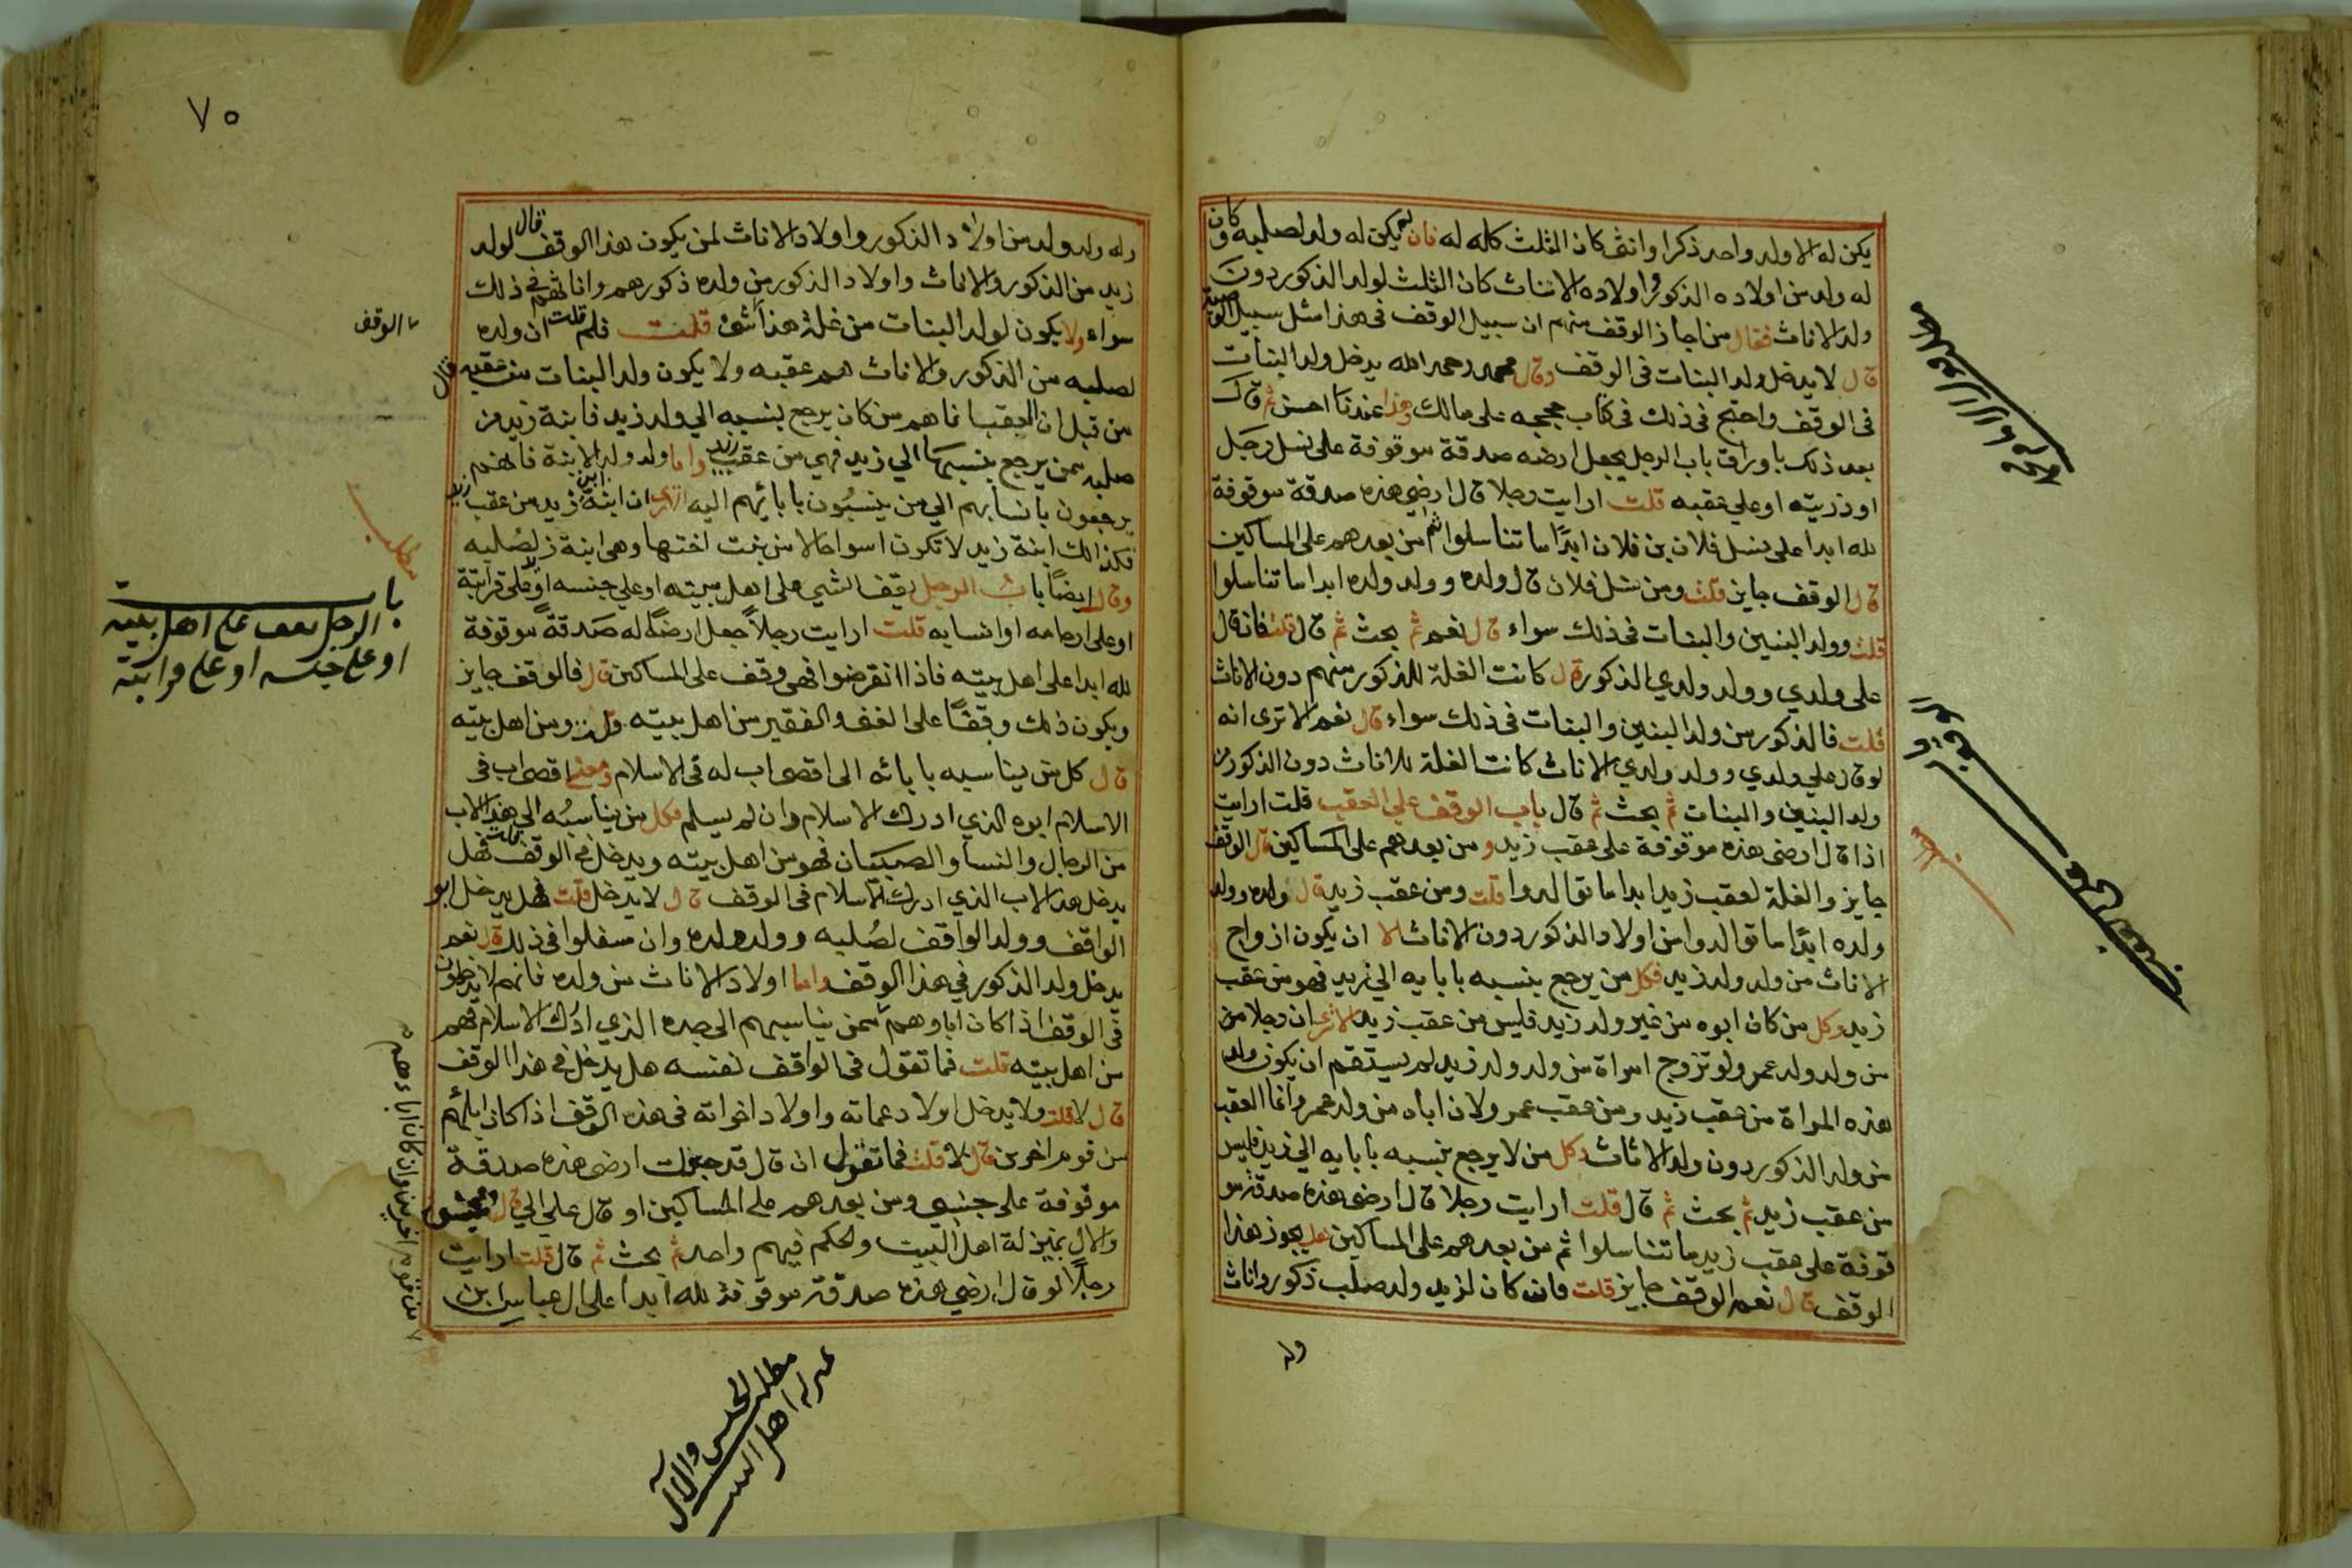 يكن له الا ولد واحد ذكرا وانثى كان الثلث كله له فان لم يكن له ولد لصلبه وكان
له ولد من اولاده الذكور واولاده الاناث كان الثلث لولد الذكور دون
ولد الاناث فقال من اجاز الوقف منهم ان سبيل الوقف فى هذا مثل سبيل الوصية
قال لا يدخل ولد البنات فى الوقف وقال محمد رحمه الله يدخل ولد البنات
فى الوقف واحتج فى ذلك فى كتاب حججه على مالك وهذا عندنا احسن ثم قال
بعد ذلك باوراق باب الرجل يجعل ارضه صدقة موقوفة على نسل رجل
او ذريته او على عقبه قلت ارايت رجلا قال ارضي هذه صدقة موقوفة
لله ابدا على نسل فلان بن فلان ابدًا ما تناسلوا ثم من بعدهم على المساكين
قال الوقف جايز قلت ومن نسل فلان قال ولده وولد ولده ابدا ما تناسلوا
قلت وولد البنين والبنات فى ذلك سواء قال نعم ثم بحث ثم قال قلت فان قال
على ولدي وولد ولدي الذكور قال كانت الغلة للذكور منهم دون الاناث
قلت فالذكور من ولد البنين والبنات فى ذلك سواء قال نعم الا ترى انه
لو قال على ولدي وولد ولدي الاناث كانت الغلة للاناث دون الذكور من
ولد البنين والبنات ثم بحث ثم قال باب الوقف على العقب قلت ارايت
اذا قال ارضى هذه موقوفة على عقب زيد ومن بعدهم على المساكين قال الوقف
جايز والغلة لعقب زيد ابدا ما توالدوا قلت ومن عقب زيد قال ولده وولد
ولده ابدًا ما توالدوا من اولاد الذكور دون الاناث الا ان يكون ازواج
الاناث من ولد ولد زيد فكل من يرجع بنسبه بابايه الي زيد فهو من عقب
زيد وكل من كان ابوه من غير ولد زيد فليس من عقب زيد الا ترى ان رجلا من
من ولد ولد عمرو لو تزوج امراة من ولد ولد زيد لم يستقم ان يكون ولد
هذه المراة من عقب زيد ومن عقب عمرو لان اباه من ولد عمرو انما العقب
من ولد الذكور دون ولد الاناث وكل من لا يرجع بنسبه بابايه الي زيد فليس
من عقب زيد ثم بحث ثم قال قلت ارايت رجلا قال ارضى هذه صدقة مو
قوفة على عقب زيد ما تناسلوا ثم من بعدهم على المساكين هل يجوز هذا
الوقف قال نعم الوقف جايز قلت فان كان لزيد ولد صلب ذكور واناث
وله
٧٥
وله ولد ولد من اولاد الذكور واولاد الاناث لمن يكون هذا الوقف قال لولد
زيد من الذكور والاناث واولاد الذكور من ولده ذكورهم واناثهم فى ذلك
سواء ولا يكون لولد البنات من غلة هذا شئ قلت فلم قلت ان ولده
لصلبه من الذكور والاناث هم عقبه ولا يكون ولد البنات من عقبه قال
من قبل ان العقب انما هم من كان يرجع بنسبه الي ولد زيد فابنة زيد من
صلبه ممن يرجع بنسبها الي زيد فهي من عقب زيد واما ولد ولد الابنة فانهم
يرجعون بانسابهم الي من ينسبُون بابائهم اليه الا ترى ان ابنة ابن زيد من عقب زيد
فكذلك ابنة زيد لا تكون اسوا حالا من بنت اختها وهى ابنة زيد لصُلبه
وقال ايضًا بابُ الرجل يقف الشي على اهل بيته او علي جنسه او على قرابته
او على ارحامه او انسابه قلت ارايت رجلاً جعل ارضًا له صدقةً موقوفة
لله ابدا على اهل بيته فاذا انقرضوا فهى وقف على المساكين قال فالوقف جايز
ويكون ذلك وقفًا على الغنى والفقير من اهل بيته قلت ومن اهل بيته
قال كل من يناسبه بابائه الى اقصى اب له فى الاسلام ومعنى اقصى اب فى
الاسلام ابوه الذي ادرك الاسلام وان لم يسلم فكل من يناسبُه الي هذا الاب
من الرجال والنسا والصبيان فهو من اهل بيته ويدخل فى الوقف قلت فهل
يدخل هذا الاب الذي ادرك الاسلام فى الوقف قال لا يدخل قلت فهل يدخل ابو
الواقف وولد الواقف لصُلبه وولد ولده وان سفلوا فى ذلك قال نعم
يدخل ولد الذكور في هذا الوقف واما اولاد الاناث من ولده فانهم لا يدخلون
فى الوقف الا اذا كان اباوهم ممن يناسبهم الى جده الذي ادرك الاسلام فهم
من اهل بيته قلت فما تقول فى الواقف نفسه هل يدخل فى هذا الوقف
قال لا قلت ولا يدخل اولاد عماته واولاد اخواته فى هذه الوقف اذا كان ابائهم
من قوم اخرين قال لا قلت فما تقول ان قال قد جعلت ارضى هذه صدقة
موقوفة على جنسي ومن بعدهم على المساكين او قال على الي قال
والال بمنزلة اهل البيت والحكم فيهم واحد ثم بحث ثم قال قلت ارايت
رجلًا لو قال ارضي هذه صدقة موقوفة لله ابدًا على ال عباس ابن
الوقف
مطلب
باب
الرجل يقف على اهل بيته
او على جنسه او على قرابته
مطلب الجنس والآل
بمنزلة اهل البيت